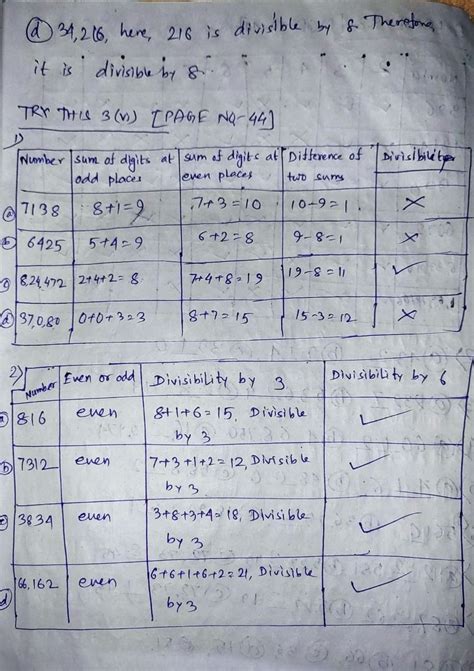 (d) 34,216, here, 216 is divisible by 8. Therefore,
it is divisible by 8.
TRY THIS 3(v) [PAGE NO-44]
1)
Number | sum of digits at odd places | sum of digits at even places | Difference of two sums | Divisibility
(a) 7138 | 8+1=9 | 7+3=10 | 10-9=1. | ×
(b) 6425 | 5+4=9 | 6+2=8 | 9-8=1 | ×
(c) 8,24,472 | 2+4+2=8 | 7+4+8=19 | 19-8=11 | ✓
(d) 37,080 | 0+0+3=3 | 8+7=15 | 15-3=12 | ×
2)
Number | Even or odd | Divisibility by 3 | Divisibility by 6
(a) 816 | even | 8+1+6=15, Divisible by 3 | ✓
(b) 7312 | even | 7+3+1+2=12, Divisible by 3 | ✓
(c) 3834 | even | 3+8+3+4=18, Divisible by 3 | ✓
(d) 66,162 | even | 6+6+1+6+2=21, Divisible by 3 | ✓